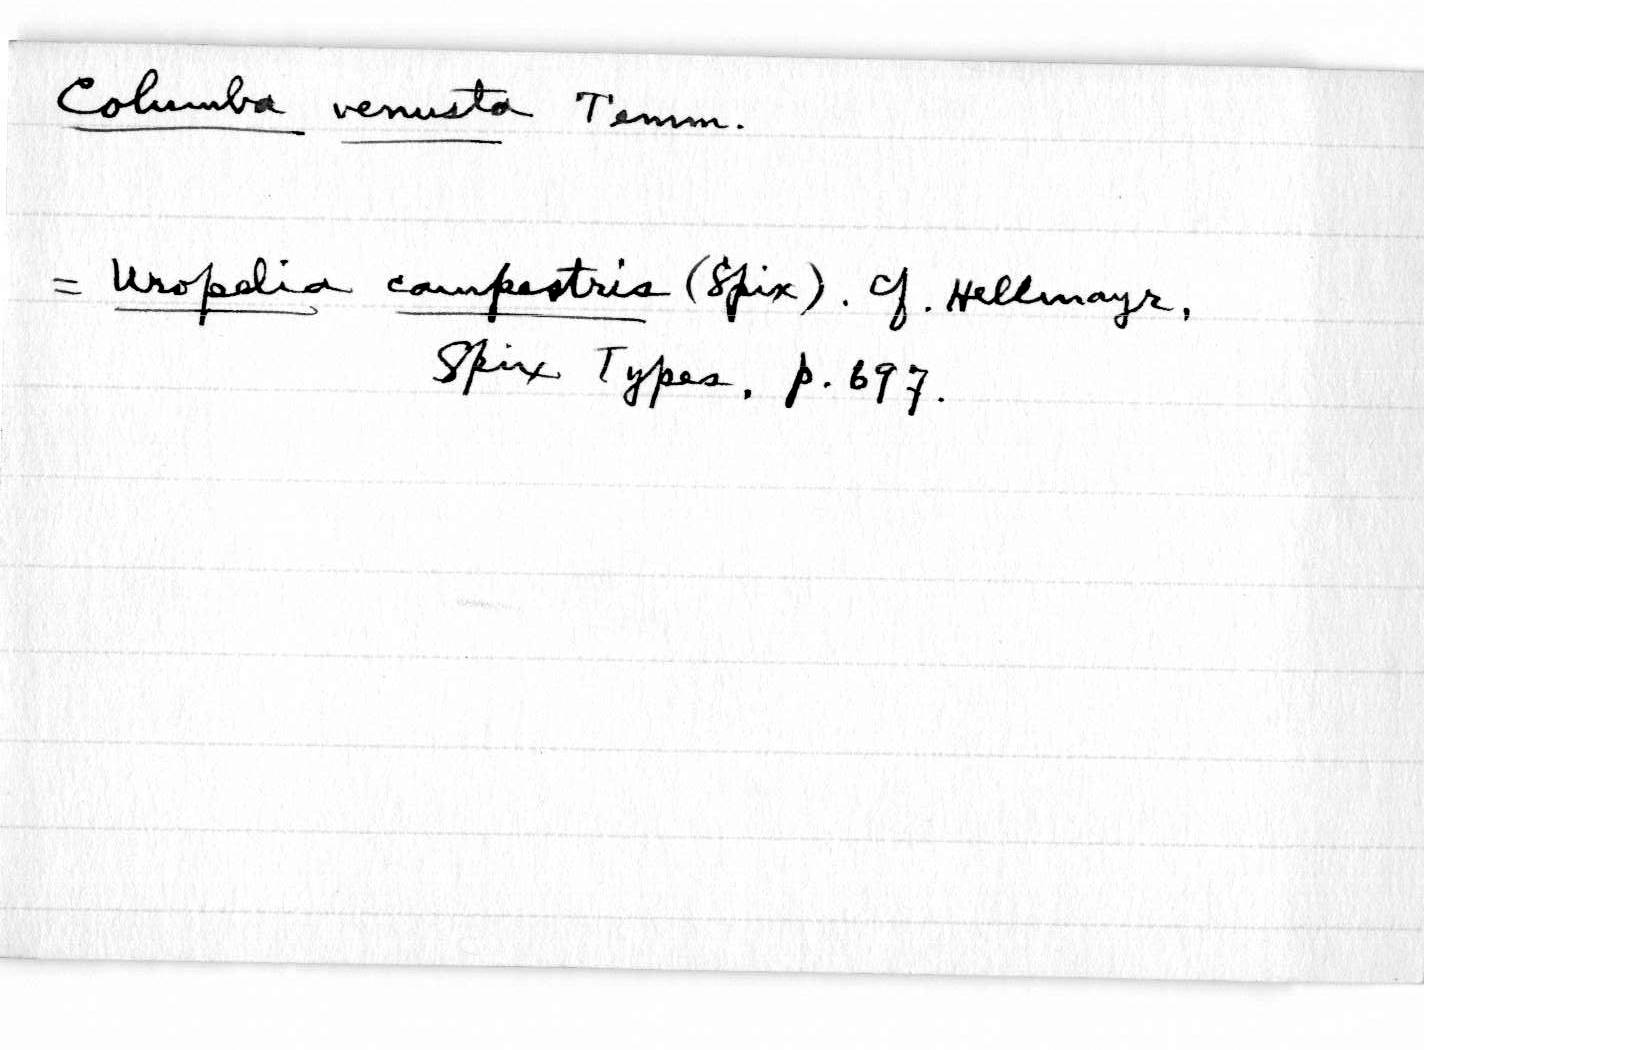 Columba venusta Temm.
= Uropelia campestris (Spix). Cf. Hellmayr,
Spix Types, p. 697.